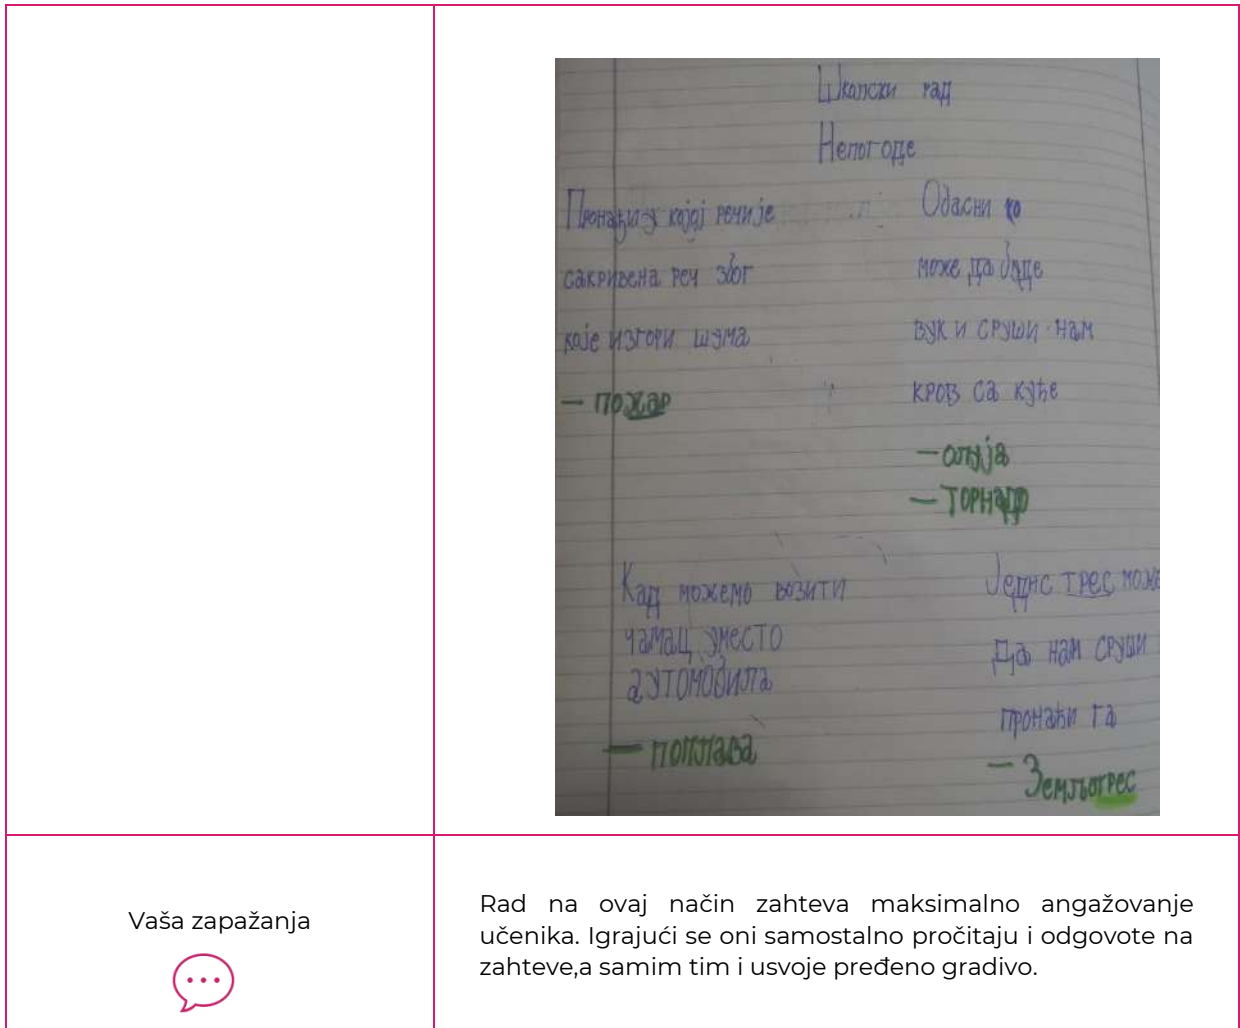 Школски рад
Непогоде
Пронађи у којој речи је
сакривена реч због
које изгори шума
— пожар
Опасни ко
може да буде
вук и сруши нам
кров са куће
— олуја
— Торнадо
Кад можемо возити
чамац уместо
аутомобила
— поплава
трес може
Да нам сруши
пронађи га
— Земљотрес
Vaša zapažanja
Rad na ovaj način zahteva maksimalno angažovanje
učenika. Igrajući se oni samostalno pročitaju i odgovote na
zahteve,a samim tim i usvoje pređeno gradivo.